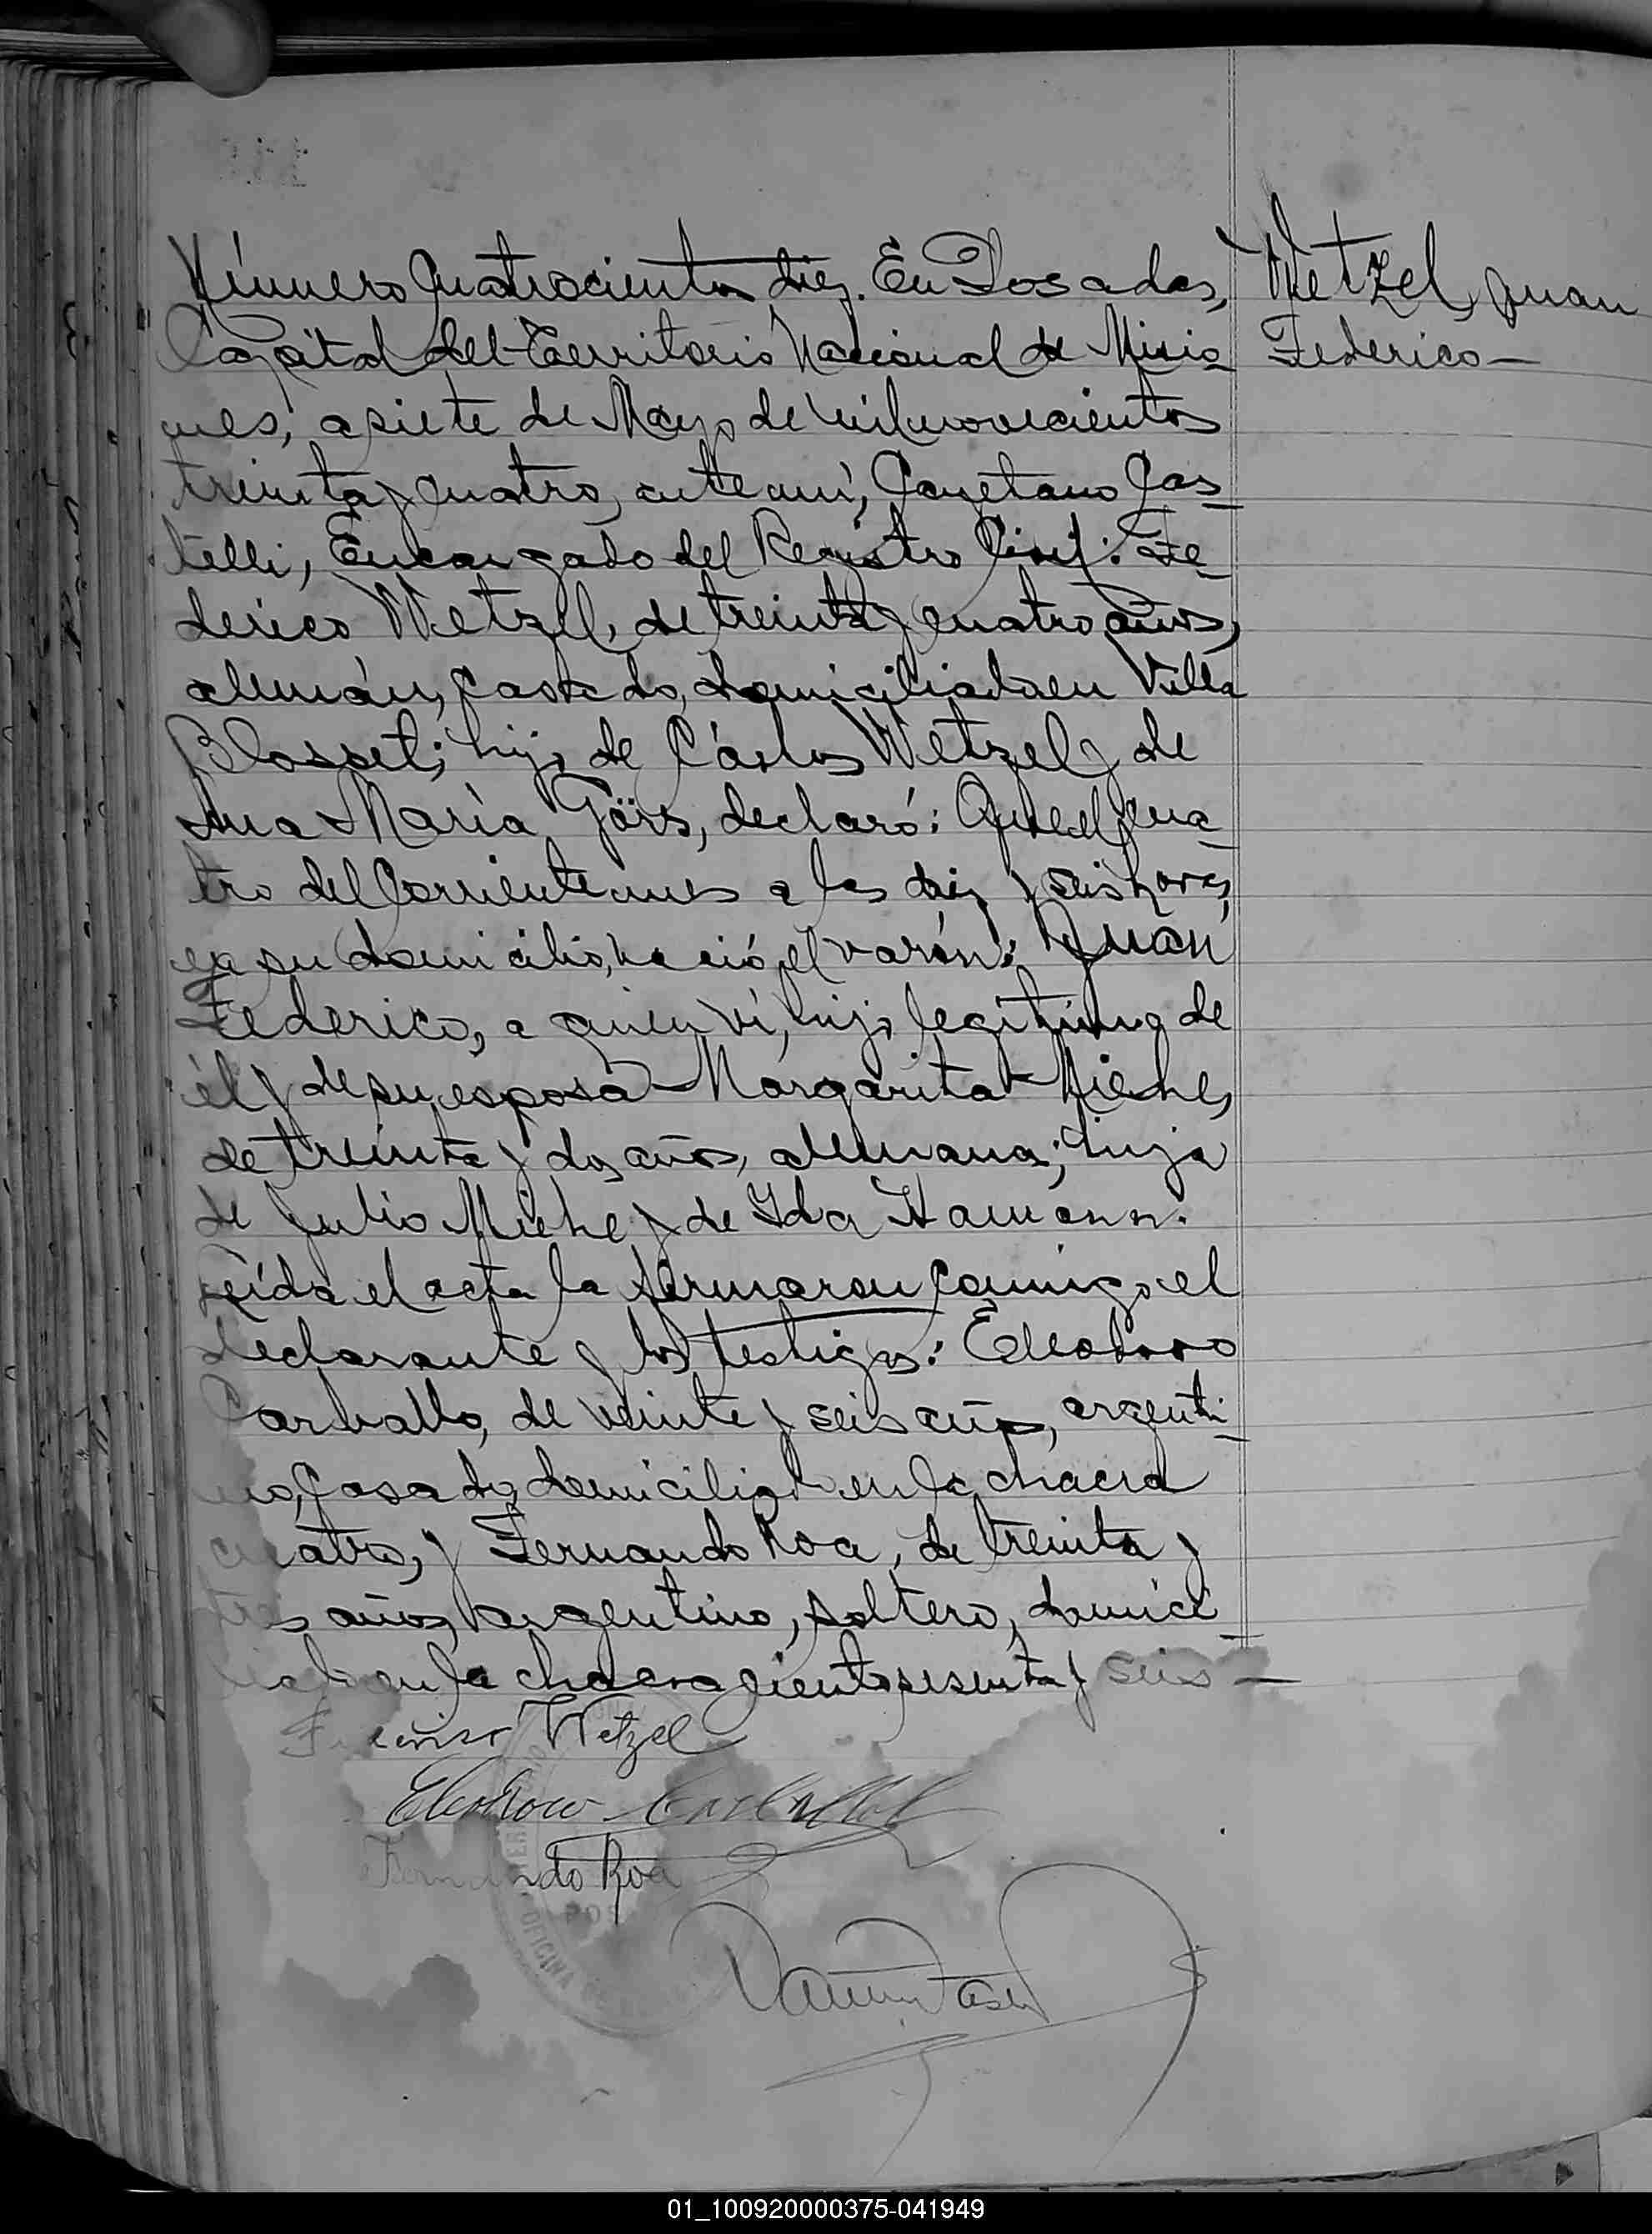 Número Cuatrocientos diez. En Posadas,
Capital del Territorio Nacional de Misio-
nes, a siete de Mayo de mil novecientos
treinta y cuatro, ante mí, Cayetano Cas-
telli, Encargado del Registro Civil: Fe-
derico Wetzel, de treinta y cuatro años,
alemán, casado, domiciliado en Villa
Blosset; hijo de Cárlos Wetzel y de
Ana María Görs, declaró: Que el cua-
tro del corriente mes a las diez y seis horas,
en su domicilio, nació el varón: Juan
Federico, a quien ví, hijo legítimo de
él y de su esposa Margarita Miehe,
de treinta y dos años, alemana; hija
de Julio Miehe y de Ida Hamann.
Leída el acta la firmaron conmigo el
declarante y los testigos: Eleodoro
Carballo, de veinte y seis años, argenti-
no, casado, domiciliado en la chacra
cuatro, y Fernando Roa, de treinta y
tres años, argentino, soltero, domici
liado en la chacra ciento sesenta y seis —
Wetzel, Juan
Federico —
Federico Wetzel
Eleodoro Carballo
Fernando Roa
OFICINA
01_100920000375-041949